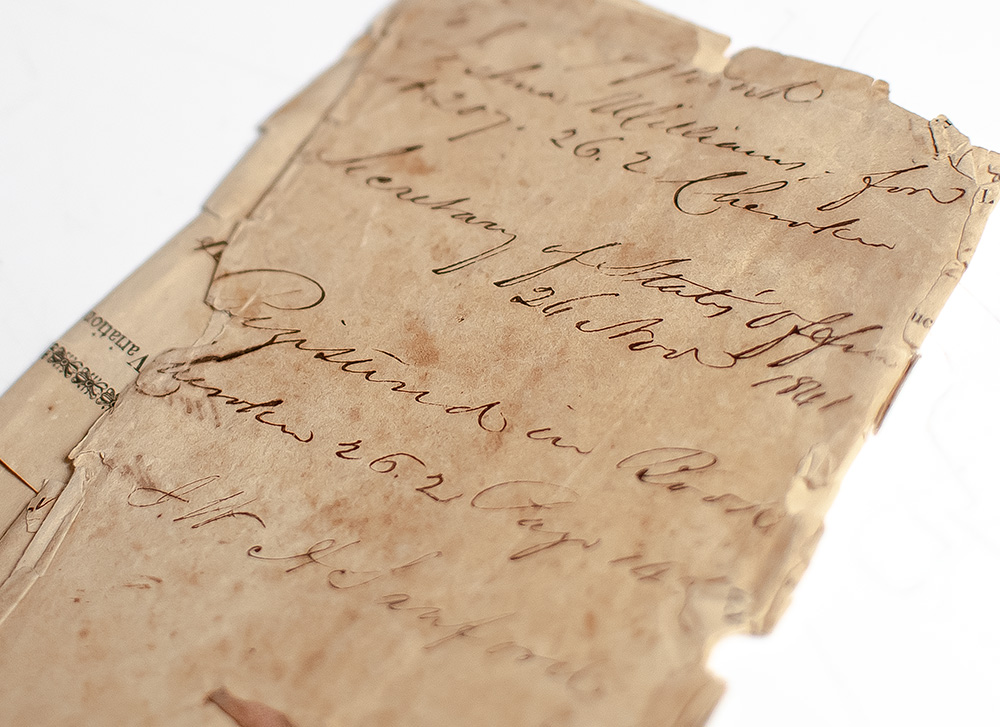 Williams. for
207. 26. 2 Cherokee
Secretary of State's Office
26 Nov 1841
Registered in Book
Cherokee 26. 2 Page
Sanford
Variation